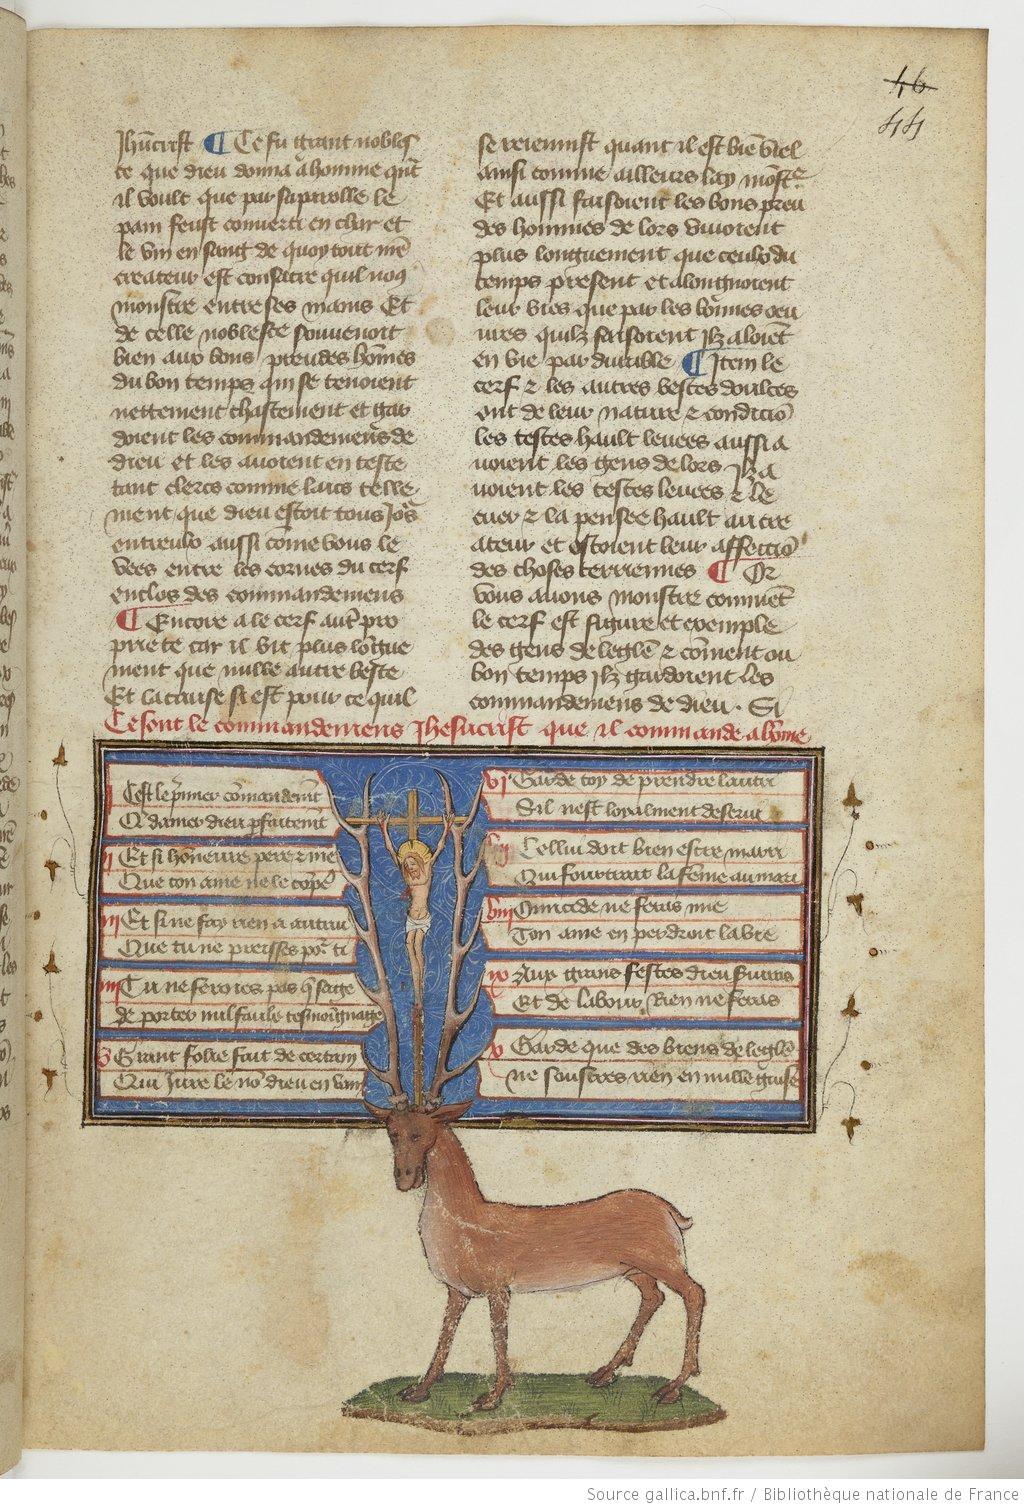 46
44
Jhucrist ¶ Ce fu grant nobles
ce que dieu donna a home qnt
il voult que par sa parolle le
pain feust converti en char et
le vin en sang de quoy tout me
createur est consacre quil nous
monstre entre ses mains Et
de celle noblesce souvenoit
bien aux bons preudes homes
du bon temps qui se tenoient
nettement chastement et gar
doient les commandemens de
dieu et les avoient en teste
tant clercs comme laics telle
ment que dieu estoit tous jors
entreulx aussi come vous le
vees entre les cornes du cerf
enclos des commandemens
¶ Encore a le cerf autre pro
priete car il vit plus longue
ment que nulle autre beste
Et la cause si est pour ce quil
se reiennist quant il est bien viel
ainsi comme ailleurs lay mostre
Et aussi faisoient les bons preu
des hommes de lors vivoient
plus longuement que ceulx du
temps present et alongnoient
leur vies que par les bonnes oeu
vres quilz faisoient ilz aloient
en vie pardurable ¶ Item le
cerf & les autres bestes doulces
ont de leur nature & condicio
les testes hault levees aussi a
voient les gens de lors Ilz a
voient les testes levees & le
cuer & la pensee hault au cre
ateur et ostoient leur affectio
des choses terriennes ¶ Or
vous avons monstre comment
le cerf est figure et exemple
des gens de leglise & coment ou
bon temps ilz gardoient les
commandemens de dieu. Si
Ce sont le commandemens Jhesucrist que il commande a home
i Cest le pmier comandement
Q damer dieu pfaitement
ii Et si honneure pere & me
Que ton ame ne le compe
iii Et si ne fay rien a autrui
Que tu ne preisses por ti
iiii Tu ne feroies pas q sage
de porter nul faulx tesmoignage
v Grant folie fait de certain
Qui jure le no dieu en vain
vi Garde toy de prendre lautri
Sil nest loyalment deservi
vii Cellui doit bien estre marri
Qui fourtrait la feme au mari
viii Omicide ne feras mie
Ton ame en perdroit la vie
ix Aux grans festes dieu serviras
Et de labour Rien ne feras
x Garde que des biens de leglise
ne soustres rien en nulle guise
Source gallica.bnf.fr / Bibliothèque nationale de France